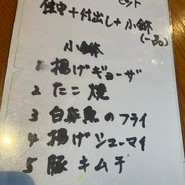 セット
生中+付出し+小鉢
(一品)
小鉢
1 揚げギョーザ
2 たこ焼
3 白身魚のフライ
4 揚げシューマイ
5 豚キムチ